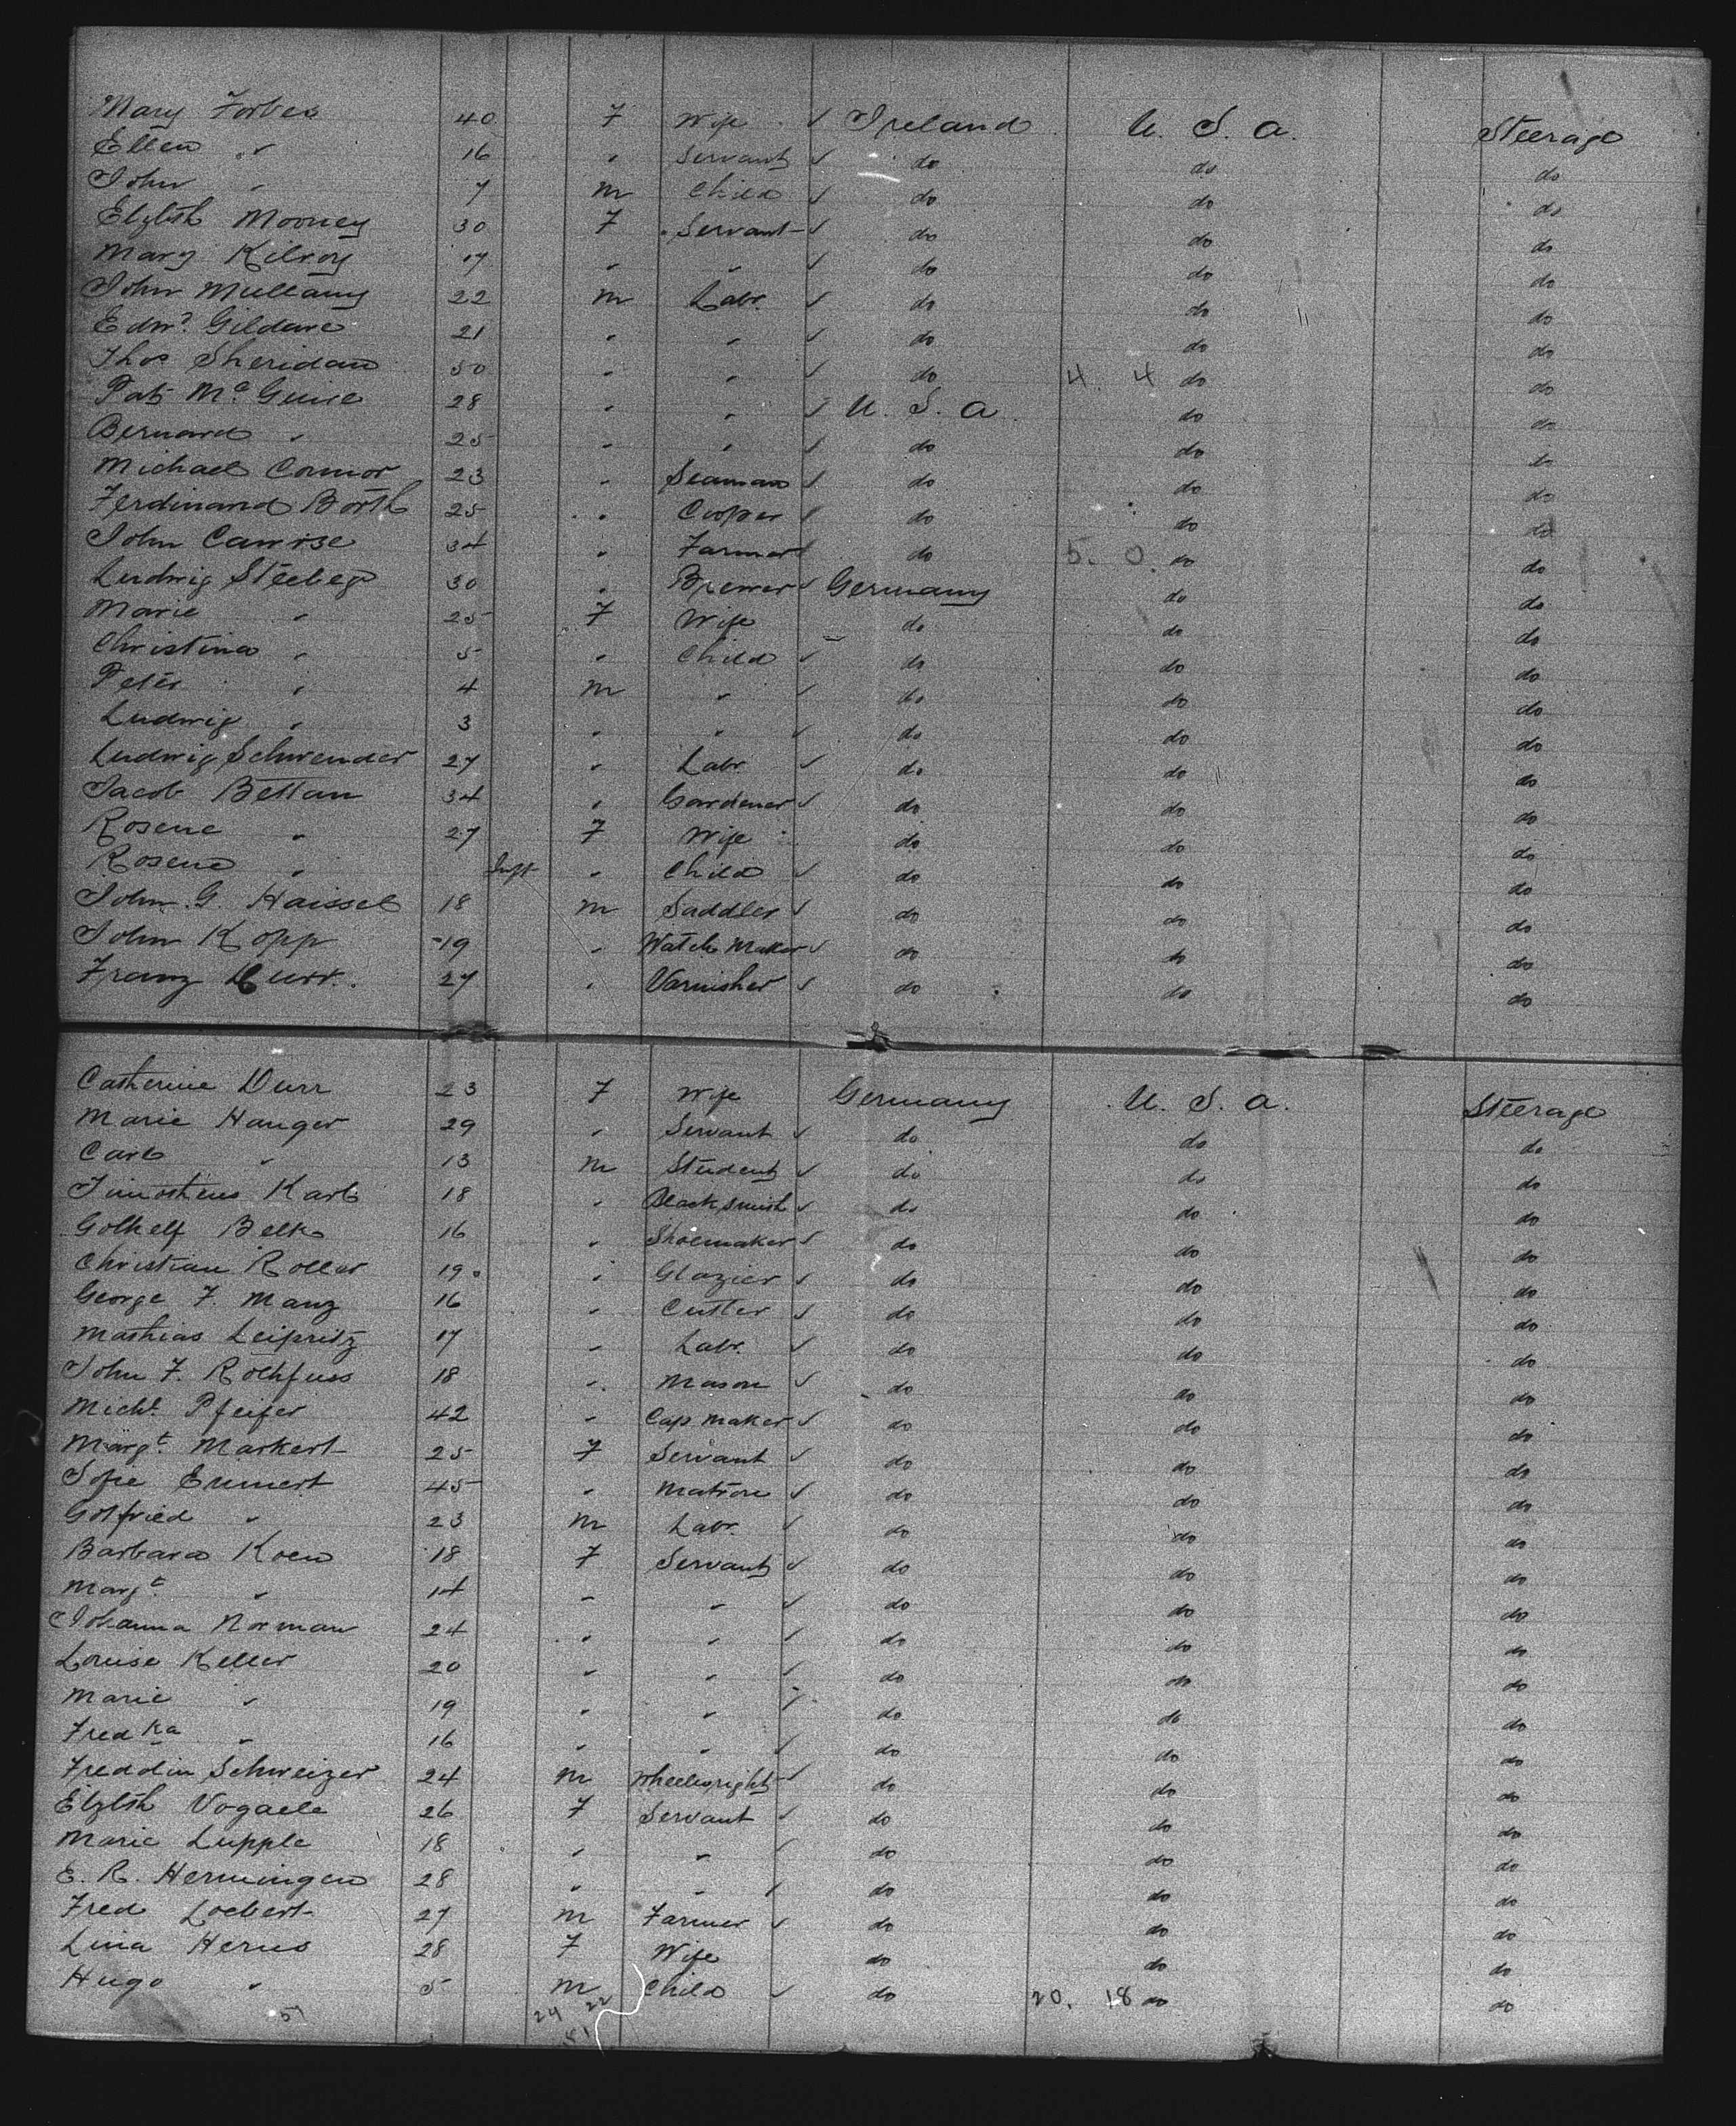 Mary Forbes 40 F Wife ✓ Ireland U. S. A. Steerage
Ellen " 16 " Servant ✓ do do do
John " 7 M Child ✓ do do do
Elzbth Mooney 30 F Servant ✓ do do do
Mary Kilroy 17 " " ✓ do do do
John Mullany 22 M Labr. ✓ do do do
Edwd. Gildare 21 " " ✓ do do do
Thos Sheridan 50 " " ✓ do 4. 4 do do
Pat Mc Guire 28 " " ✓ U. S. A do do
Bernard " 25 " " ✓ do do do
Michael Connor 23 " Seaman ✓ do do do
Ferdinand Borth 25 " Cooper ✓ do do do
John 34 " Farmer ✓ do 5. 0. do do
Ludwig 30 " Brewer ✓ Germany do do
Marie " 25 F Wife do do do
Christina " 5 " Child ✓ do do do
Peter " 4 M " ✓ do do do
Ludwig " 3 " " ✓ do do do
Ludwig Schwender 27 " Labr ✓ do do do
Jacob Bettan 34 " Gardener ✓ do do do
Rosene " 27 F Wife do do do
Rosena " Inft " Child ✓ do do do
John. G. Haissel 18 M Saddler ✓ do do do
John Kopp 19 " Watch Maker ✓ do do do
Franz Durr. 27 " Varnisher ✓ do do do
Catherine Durr 23 F Wife Germany U. S. A. Steerage
Marie Hanger 29 " Servant ✓ do do do
Carl " 13 M Student ✓ do do do
Timotheus Karl 18 " Blacksmith ✓ do do do
Golhelf Belk 16 " Shoemaker ✓ do do do
Christian Roller 19 " Glazier ✓ do do do
George F. Manz 16 " Cutler ✓ do do do
Mathias Leipritz 17 " Labr. ✓ do do do
John F. Rothfuss 18 " Mason ✓ do do do
Michl. Pfeifer 42 " Cap Maker ✓ do do do
Margt. Markert 25 F Servant ✓ do do do
Sofie Emmert 45 " Matron ✓ do do do
Gotfried " 23 M Labr. ✓ do do do
Barbara Koen 18 F Servant ✓ do do do
Margt. " 14 " " ✓ do do do
Johanna Norman 24 " " ✓ do do do
Louise Keller 20 " " ✓ do do do
Marie " 19 " " ✓ do do do
Fredka " 16 " " ✓ do do do
Freddin Schweizer 24 M Wheelwright ✓ do do do
Elzbth Vogaele 26 F Servant ✓ do do do
Marie Lupple 18 " " ✓ do do do
E. R. Herningen 28 " " ✓ do do do
Fred Loebert 27 M Farmer ✓ do do do
Lina Herns 28 F Wife do do do
Hugo " 5 M Child ✓ do 20. 18 do do
51 24 22
51